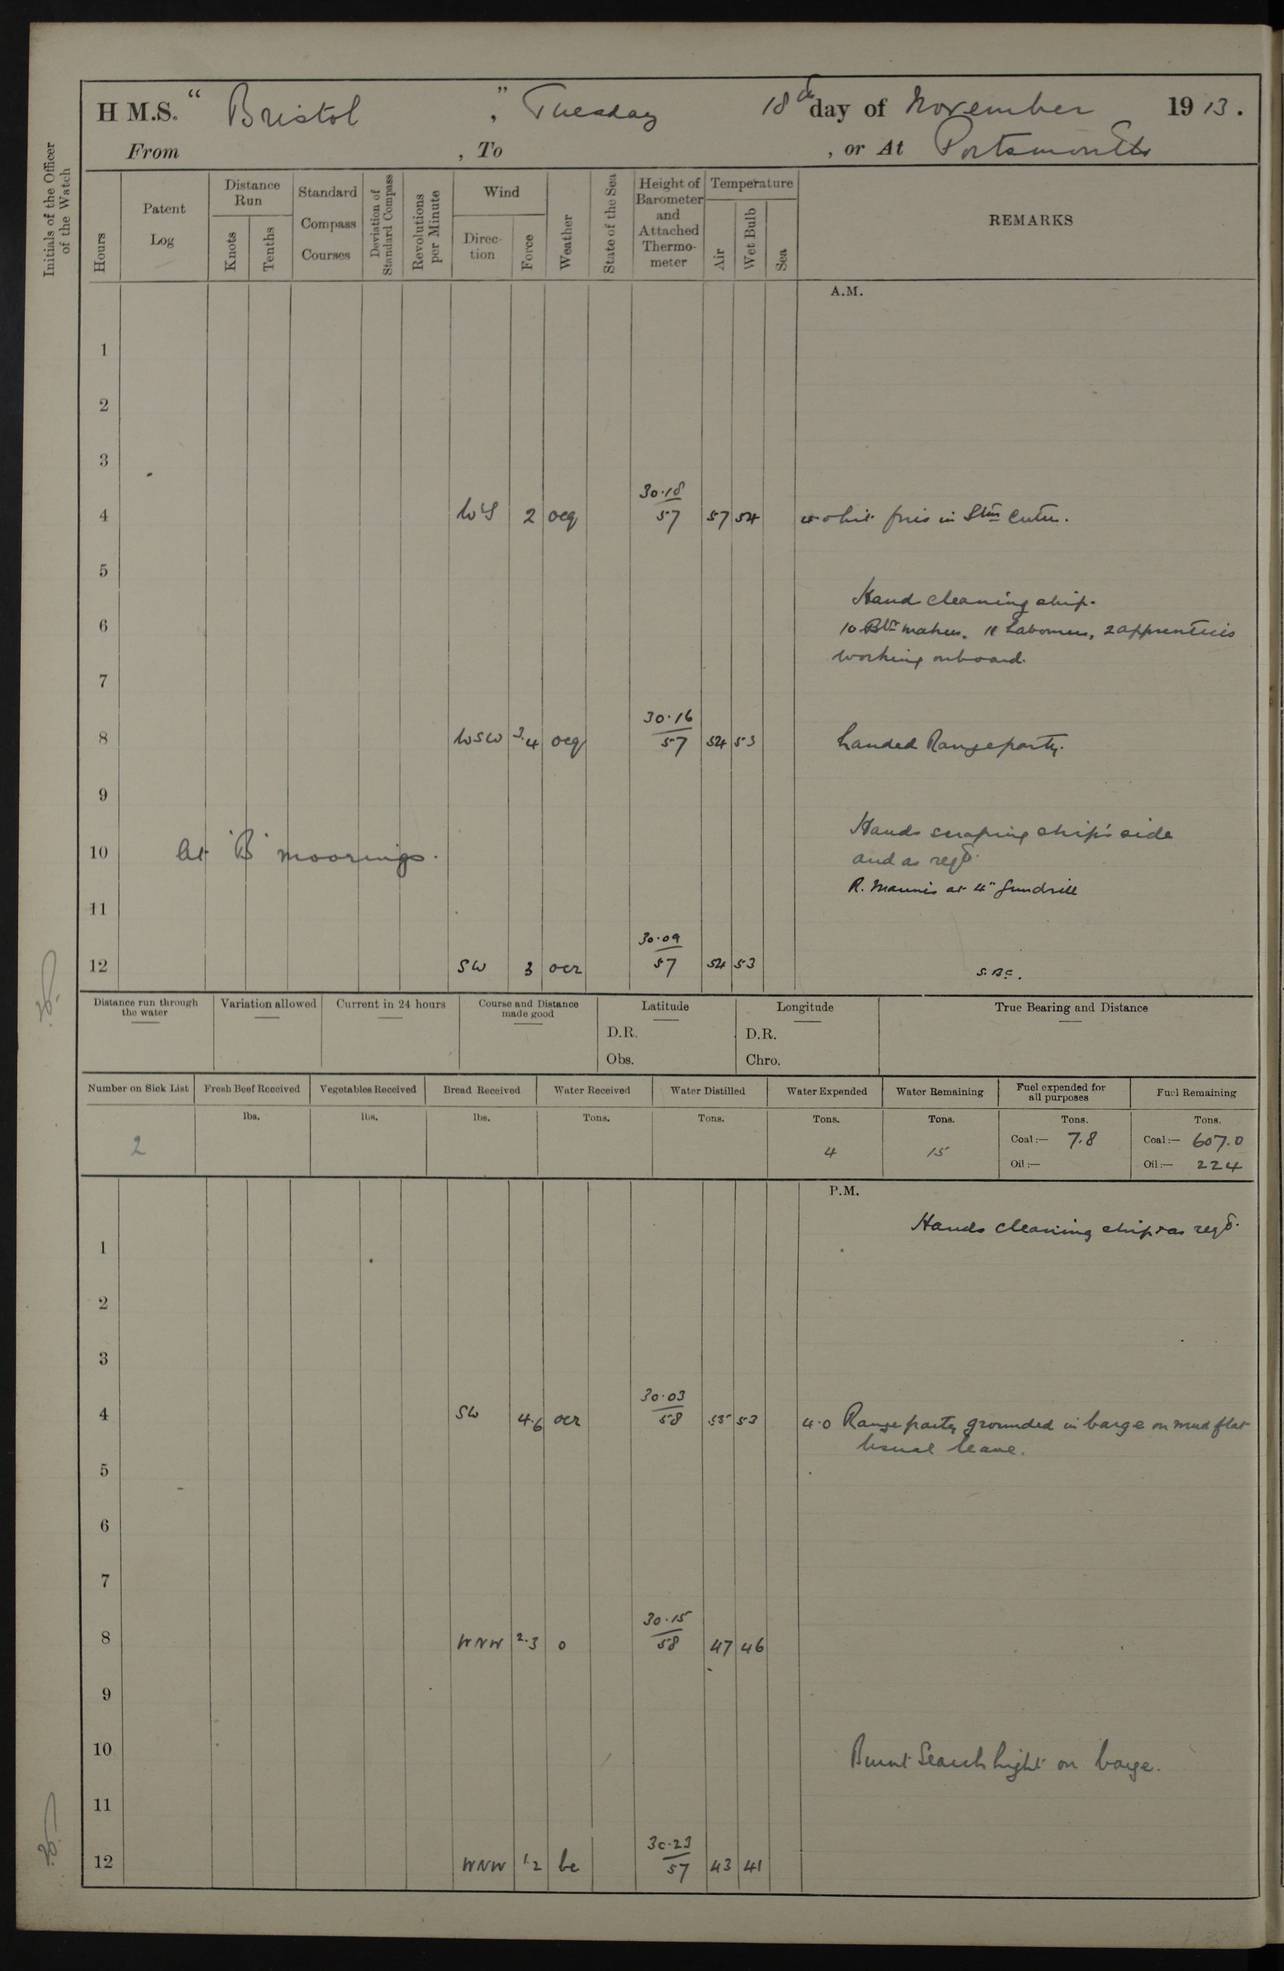 H M.S. " Bristol ", Tuesday 18th day of November 19 13.
From , To , or At Portsmouth
Initials of the Officer of the Watch
Hours
Patent Log
Distance Run
Knots
Tenths
Standard Compass Courses
Deviation of Standard Compass
Revolutions per Minute
Wind
Direction
Force
Weather
State of the Sea
Height of Barometer and Attached Thermometer
Temperature
Air
Wet Bulb
Sea
REMARKS
A.M.
1
2
3
30.18
4 W'S 2 ocq 57 57 54 fires in Stm Cutter.
5
Hands cleaning ship.
6 10 Blr makers, 11 Labourers, 2 apprentices
working onboard.
7
30.16
8 WSW 3.4 ocq 57 54 53 Landed Range party.
9
Hands scraping ship's side
10 At 'B' moorings. and as reqd.
R. Marines at 4" Gundrill
11
30.09
12 SW 3 ocr 57 54 53
Distance run through the water
Variation allowed
Current in 24 hours
Course and Distance made good
Latitude
D.R.
Obs.
Longitude
D.R.
Chro.
True Bearing and Distance
Number on Sick List Fresh Beef Received Vegetables Received Bread Received Water Received Water Distilled Water Expended Water Remaining Fuel expended for all purposes Fuel Remaining
lbs. lbs. lbs. Tons. Tons. Tons. Tons. Tons. Tons.
2 4 15 Coal:— 7.8 Coal:— 607.0
Oil:— Oil:— 224
P.M.
Hands cleaning ship & as reqd.
1
2
3
30.03
4 SW 4.6 ocr 58 55 53 4.0 Range party grounded in barge on mud flat
Usual leave.
5
6
7
30.15
8 WNW 2.3 o 58 47 46
9
10 Burnt Search light on barge.
11
30.23
12 WNW 1.2 bc 57 43 41